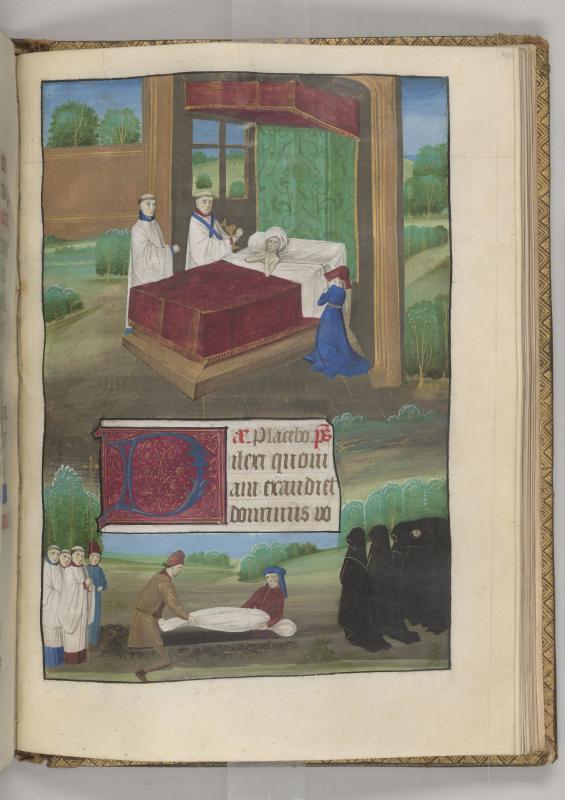 Placebo. ps
Dilexi quoni
am exaudiet
dominus vo